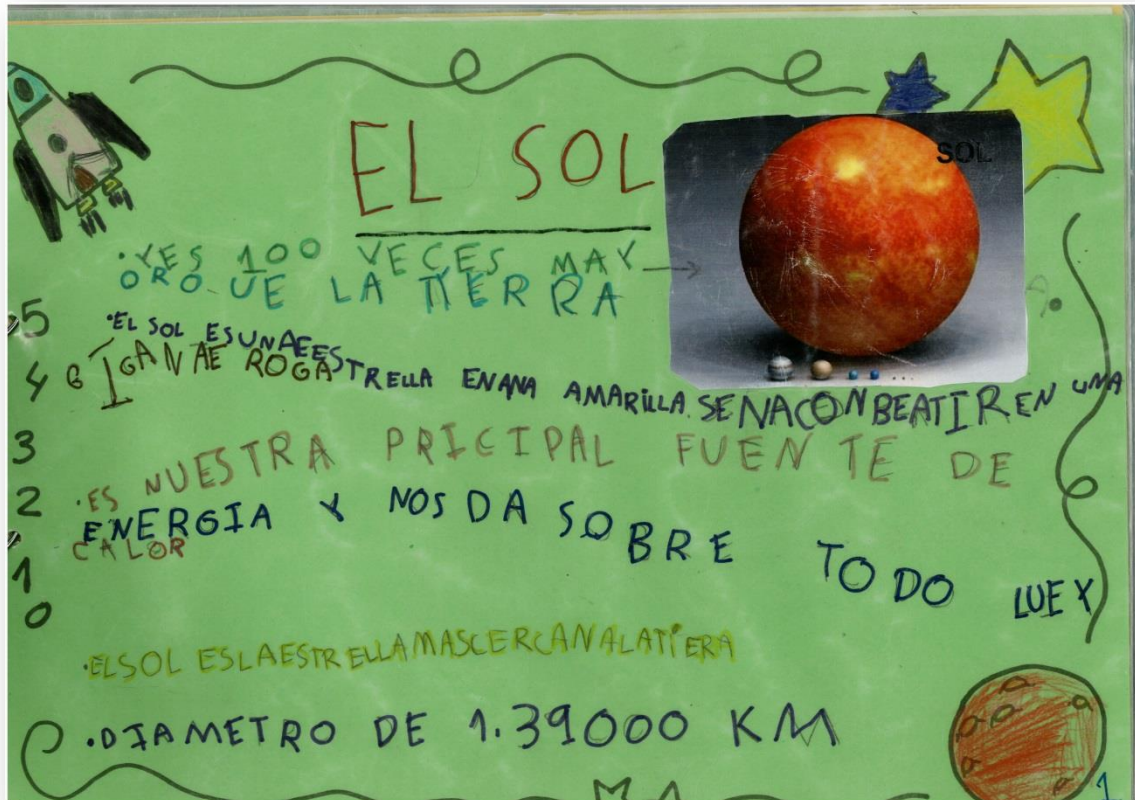 EL SOL
SOL
·YES 100 VECES MAY
OROUE LA TIERRA
5
·EL SOL ESUNAEESTRELLA ENANA AMARILLA. SENACONBEATIREN UNA
4 GIGANAE ROGA
3
·ES NUESTRA PRICIPAL FUENTE DE
2
ENERGIA Y NOS DA SOBRE TODO LUEY
CALOR
1
0
·ELSOL ESLAESTRELLAMASCERCANALATIERA
·DIAMETRO DE 1.39000 KM
1